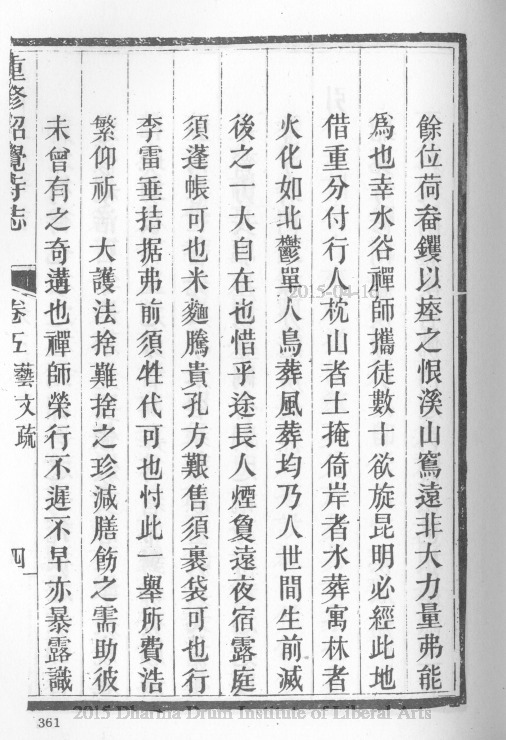 餘位荷畚钁以瘞之恨溪山窵遠非大力量弗能
爲也幸水谷禪師攜徒數十欲旋昆明必經此地
借重分付行人枕山者土掩倚岸者水葬寓林者
火化如北鬱單人鳥葬風葬均乃人世間生前滅
後之一大自在也惜乎途長人煙敻遠夜宿露庭
須蓬帳可也米麵騰貴孔方艱售須裹袋可也行
李雷垂拮据弗前須牲代可也忖此一舉所費浩
繁仰祈　大護法捨難捨之珍減膳飭之需助彼
未曾有之奇遘也禪師榮行不遲不早亦暴露識
重修紹覺寺志
卷五
藝文疏
四
361
2015-04-16
2015 Dharma Drum Institute of Liberal Arts